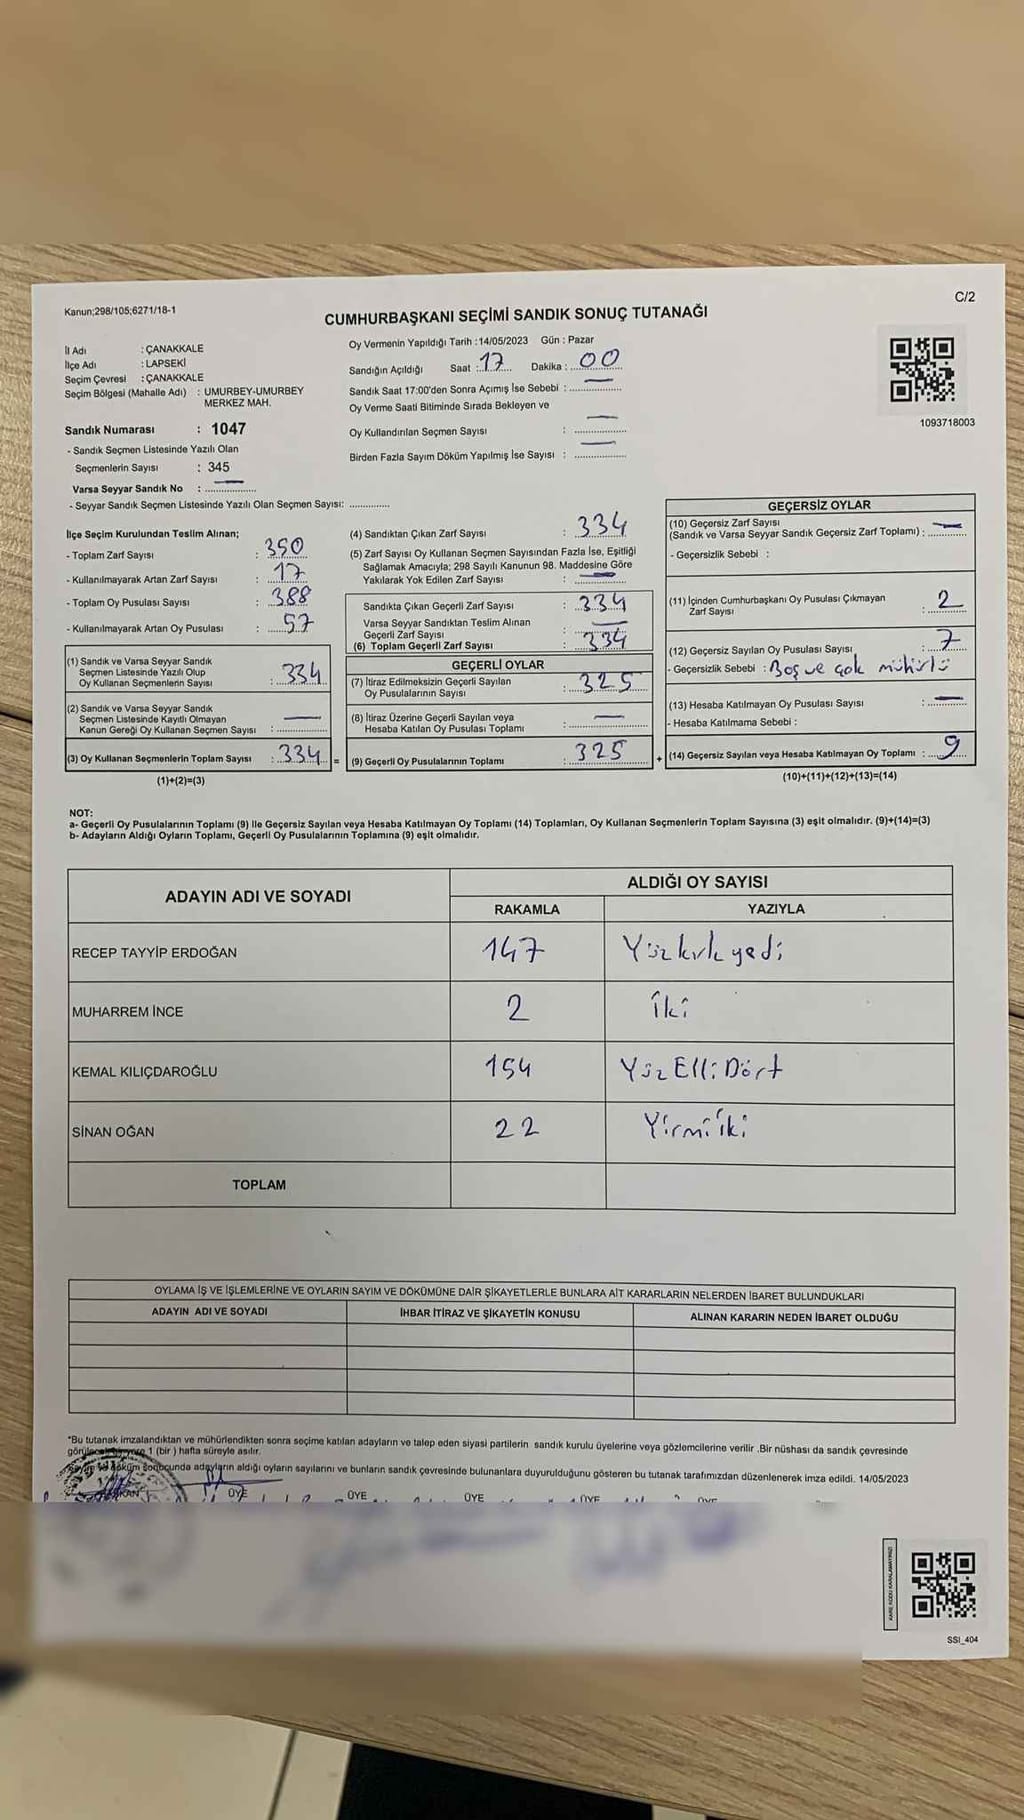 Kanun;298/105;6271/18-1
C/2
CUMHURBAŞKANI SEÇİMİ SANDIK SONUÇ TUTANAĞI
İl Adı : ÇANAKKALE
İlçe Adı : LAPSEKİ
Seçim Çevresi : ÇANAKKALE
Seçim Bölgesi (Mahalle Adı) : UMURBEY-UMURBEY
MERKEZ MAH.
Sandık Numarası : 1047
- Sandık Seçmen Listesinde Yazılı Olan
Seçmenlerin Sayısı : 345
Varsa Seyyar Sandık No : —
- Seyyar Sandık Seçmen Listesinde Yazılı Olan Seçmen Sayısı: ..............
Oy Vermenin Yapıldığı Tarih :14/05/2023 Gün : Pazar
Sandığın Açıldığı Saat : 17 Dakika : 00
Sandık Saat 17:00'den Sonra Açımış İse Sebebi : —
Oy Verme Saati Bitiminde Sırada Bekleyen ve
Oy Kullandırılan Seçmen Sayısı : —
Birden Fazla Sayım Döküm Yapılmış İse Sayısı : —
1093718003
İlçe Seçim Kurulundan Teslim Alınan;
- Toplam Zarf Sayısı : 350
- Kullanılmayarak Artan Zarf Sayısı : 17
- Toplam Oy Pusulası Sayısı : 388
- Kullanılmayarak Artan Oy Pusulası : 57
(1) Sandık ve Varsa Seyyar Sandık
Seçmen Listesinde Yazılı Olup
Oy Kullanan Seçmenlerin Sayısı : 334
(2) Sandık ve Varsa Seyyar Sandık
Seçmen Listesinde Kayıtlı Olmayan
Kanun Gereği Oy Kullanan Seçmen Sayısı : —
(3) Oy Kullanan Seçmenlerin Toplam Sayısı : 334 =
(1)+(2)=(3)
(4) Sandıktan Çıkan Zarf Sayısı : 334
(5) Zarf Sayısı Oy Kullanan Seçmen Sayısından Fazla İse, Eşitliği
Sağlamak Amacıyla; 298 Sayılı Kanunun 98. Maddesine Göre
Yakılarak Yok Edilen Zarf Sayısı : —
Sandıkta Çıkan Geçerli Zarf Sayısı : 334
Varsa Seyyar Sandıktan Teslim Alınan
Geçerli Zarf Sayısı : —
(6) Toplam Geçerli Zarf Sayısı : 334
GEÇERLİ OYLAR
(7) İtiraz Edilmeksizin Geçerli Sayılan
Oy Pusulalarının Sayısı : 325
(8) İtiraz Üzerine Geçerli Sayılan veya
Hesaba Katılan Oy Pusulası Toplamı : —
(9) Geçerli Oy Pusulalarının Toplamı : 325 +
GEÇERSİZ OYLAR
(10) Geçersiz Zarf Sayısı
(Sandık ve Varsa Seyyar Sandık Geçersiz Zarf Toplamı) : —
- Geçersizlik Sebebi :
(11) İçinden Cumhurbaşkanı Oy Pusulası Çıkmayan
Zarf Sayısı : 2
(12) Geçersiz Sayılan Oy Pusulası Sayısı : 7
- Geçersizlik Sebebi : Boş ve çok mühürlü
(13) Hesaba Katılmayan Oy Pusulası Sayısı : —
- Hesaba Katılmama Sebebi :
(14) Geçersiz Sayılan veya Hesaba Katılmayan Oy Toplamı : 9
(10)+(11)+(12)+(13)=(14)
NOT:
a- Geçerli Oy Pusulalarının Toplamı (9) İle Geçersiz Sayılan veya Hesaba Katılmayan Oy Toplamı (14) Toplamları, Oy Kullanan Seçmenlerin Toplam Sayısına (3) eşit olmalıdır. (9)+(14)=(3)
b- Adayların Aldığı Oyların Toplamı, Geçerli Oy Pusulalarının Toplamına (9) eşit olmalıdır.
ADAYIN ADI VE SOYADI
ALDIĞI OY SAYISI
RAKAMLA YAZIYLA
RECEP TAYYİP ERDOĞAN 147 Yüzkırkyedi
MUHARREM İNCE 2 İki
KEMAL KILIÇDAROĞLU 154 Yüz Elli Dört
SİNAN OĞAN 22 Yirmi iki
TOPLAM
OYLAMA İŞ VE İŞLEMLERİNE VE OYLARIN SAYIM VE DÖKÜMÜNE DAİR ŞİKAYETLERLE BUNLARA AİT KARARLARIN NELERDEN İBARET BULUNDUKLARI
ADAYIN ADI VE SOYADI İHBAR İTİRAZ VE ŞİKAYETİN KONUSU ALINAN KARARIN NEDEN İBARET OLDUĞU
*Bu tutanak imzalandıktan ve mühürlendikten sonra seçime katılan adayların ve talep eden siyasi partilerin sandık kurulu üyelerine veya gözlemcilerine verilir .Bir nüshası da sandık çevresinde
1 (bir ) hafta süreyle asılır.
döküm sonucunda adayların aldığı oyların sayılarını ve bunların sandık çevresinde bulunanlara duyurulduğunu gösteren bu tutanak tarafımızdan düzenlenerek imza edildi. 14/05/2023
BAŞKAN ÜYE ÜYE ÜYE ÜYE ÜYE
KARE KODU KARALAMAYINIZ
SSI_404